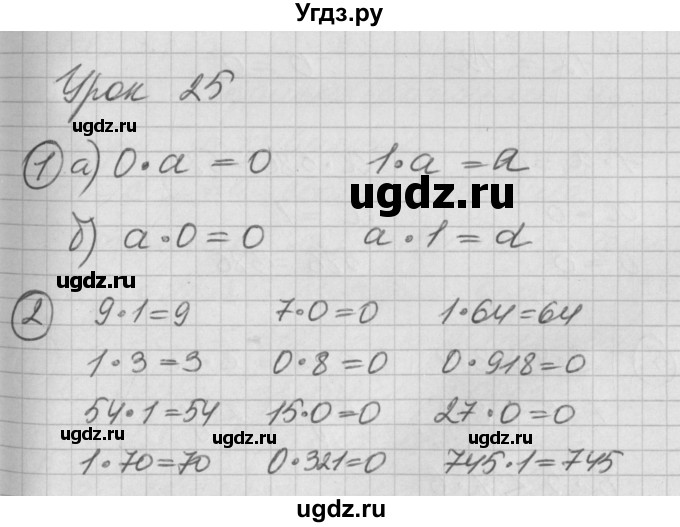 Угдз.ру
Урок 25
ugdz.ru
1 а) 0·a = 0 1·a = a
ugdz.ru
б) a·0 = 0 a·1 = a
ugdz.ru
2 9·1=9 7·0=0 1·64=64
1·3=3 0·8=0 0·918=0
54·1=54 15·0=0 27·0=0
ugdz.ru ugdz.ru ugdz.ru
1·70=70 0·321=0 745·1=745
ugdz.ru